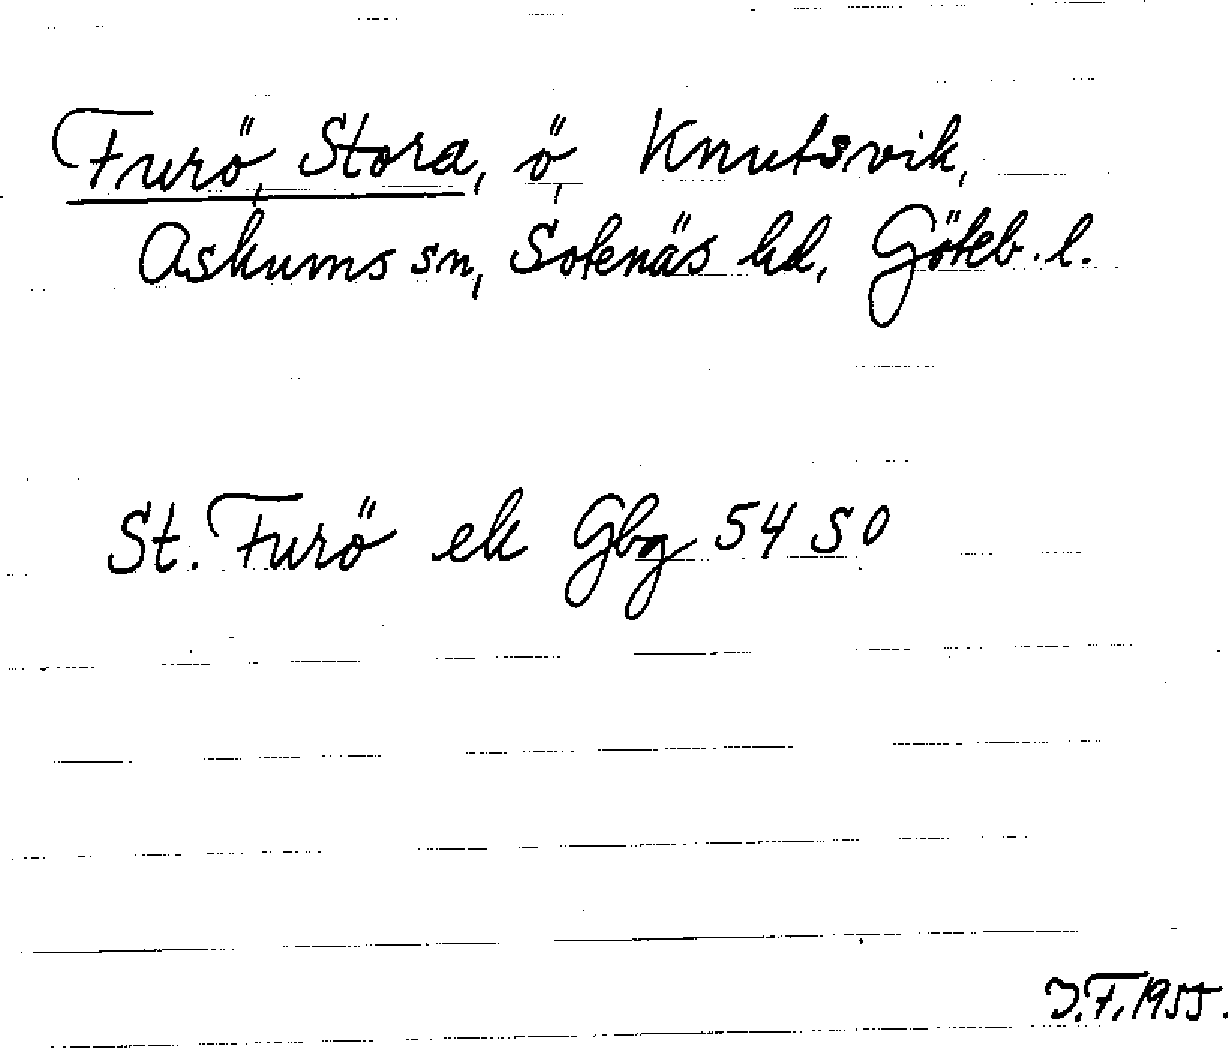 Furö, Stora, ö, Knutsvik,
Askums sn, Sotenäs hd, Göteb. l.
St. Furö ek Gbg 54 SO
J.F. 1955.